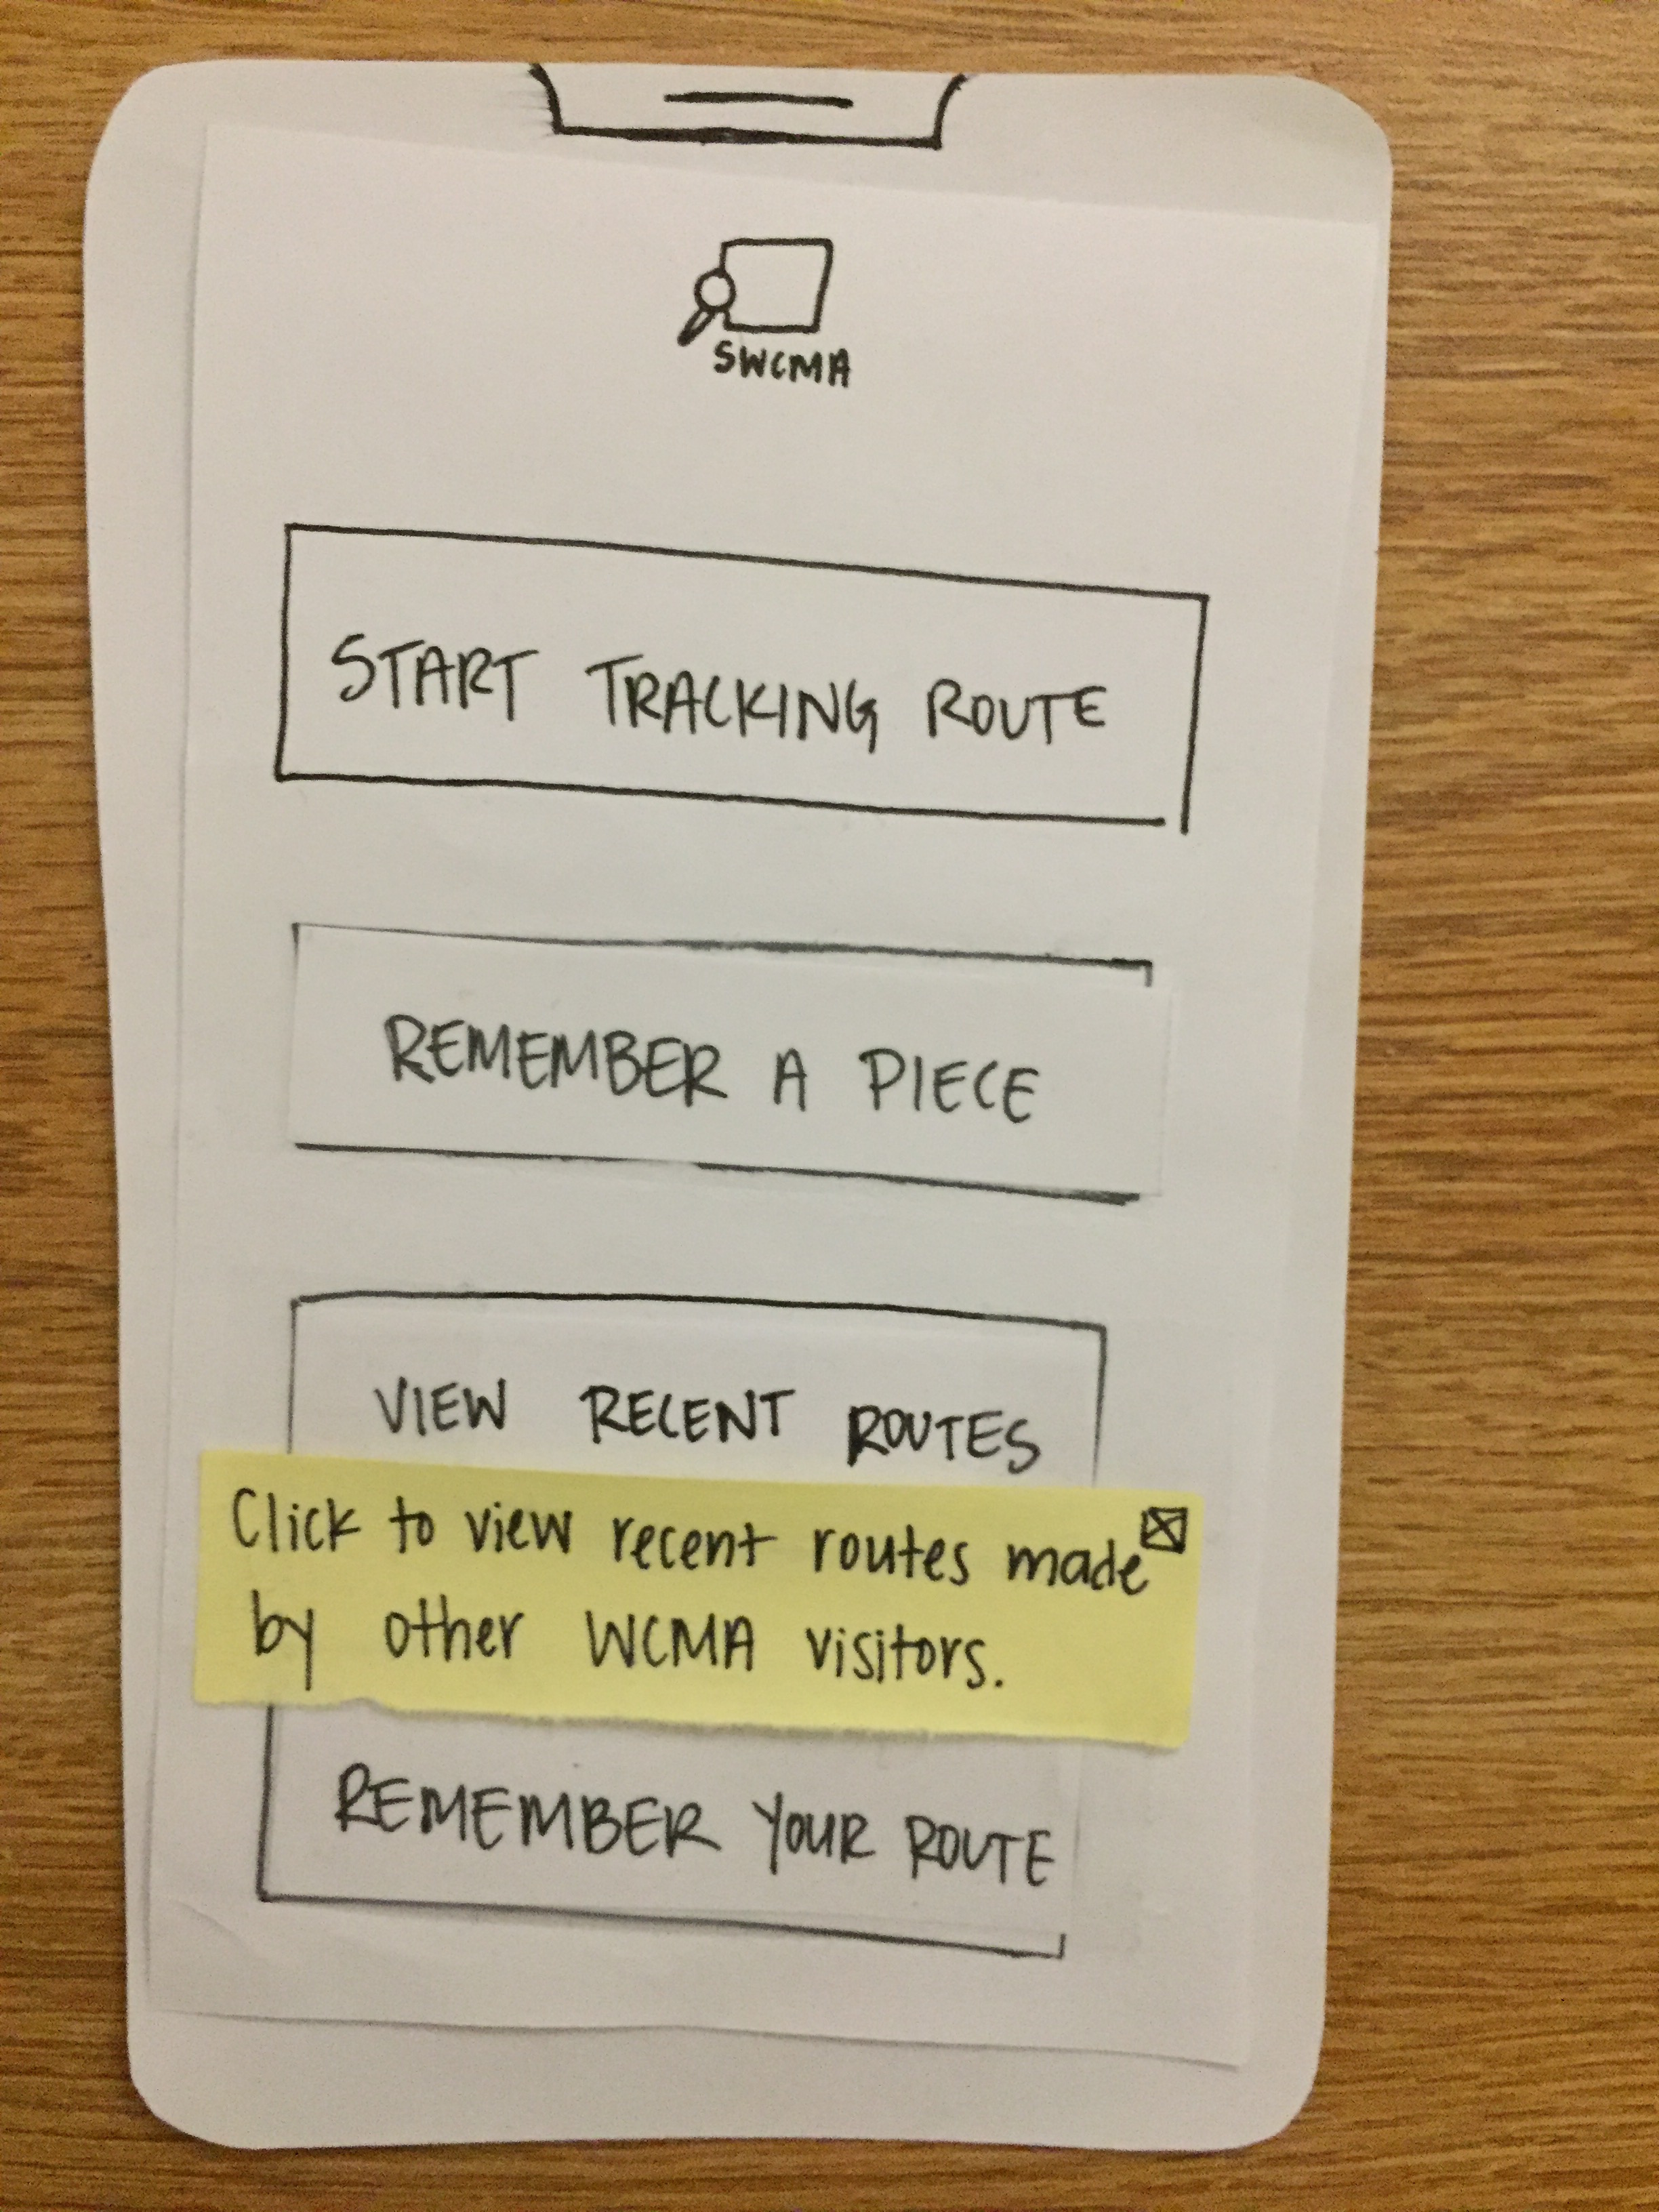 SWCMA
START TRACKING ROUTE
REMEMBER A PIECE
VIEW RECENT ROUTES
Click to view recent routes made
by other WCMA visitors.
REMEMBER YOUR ROUTE